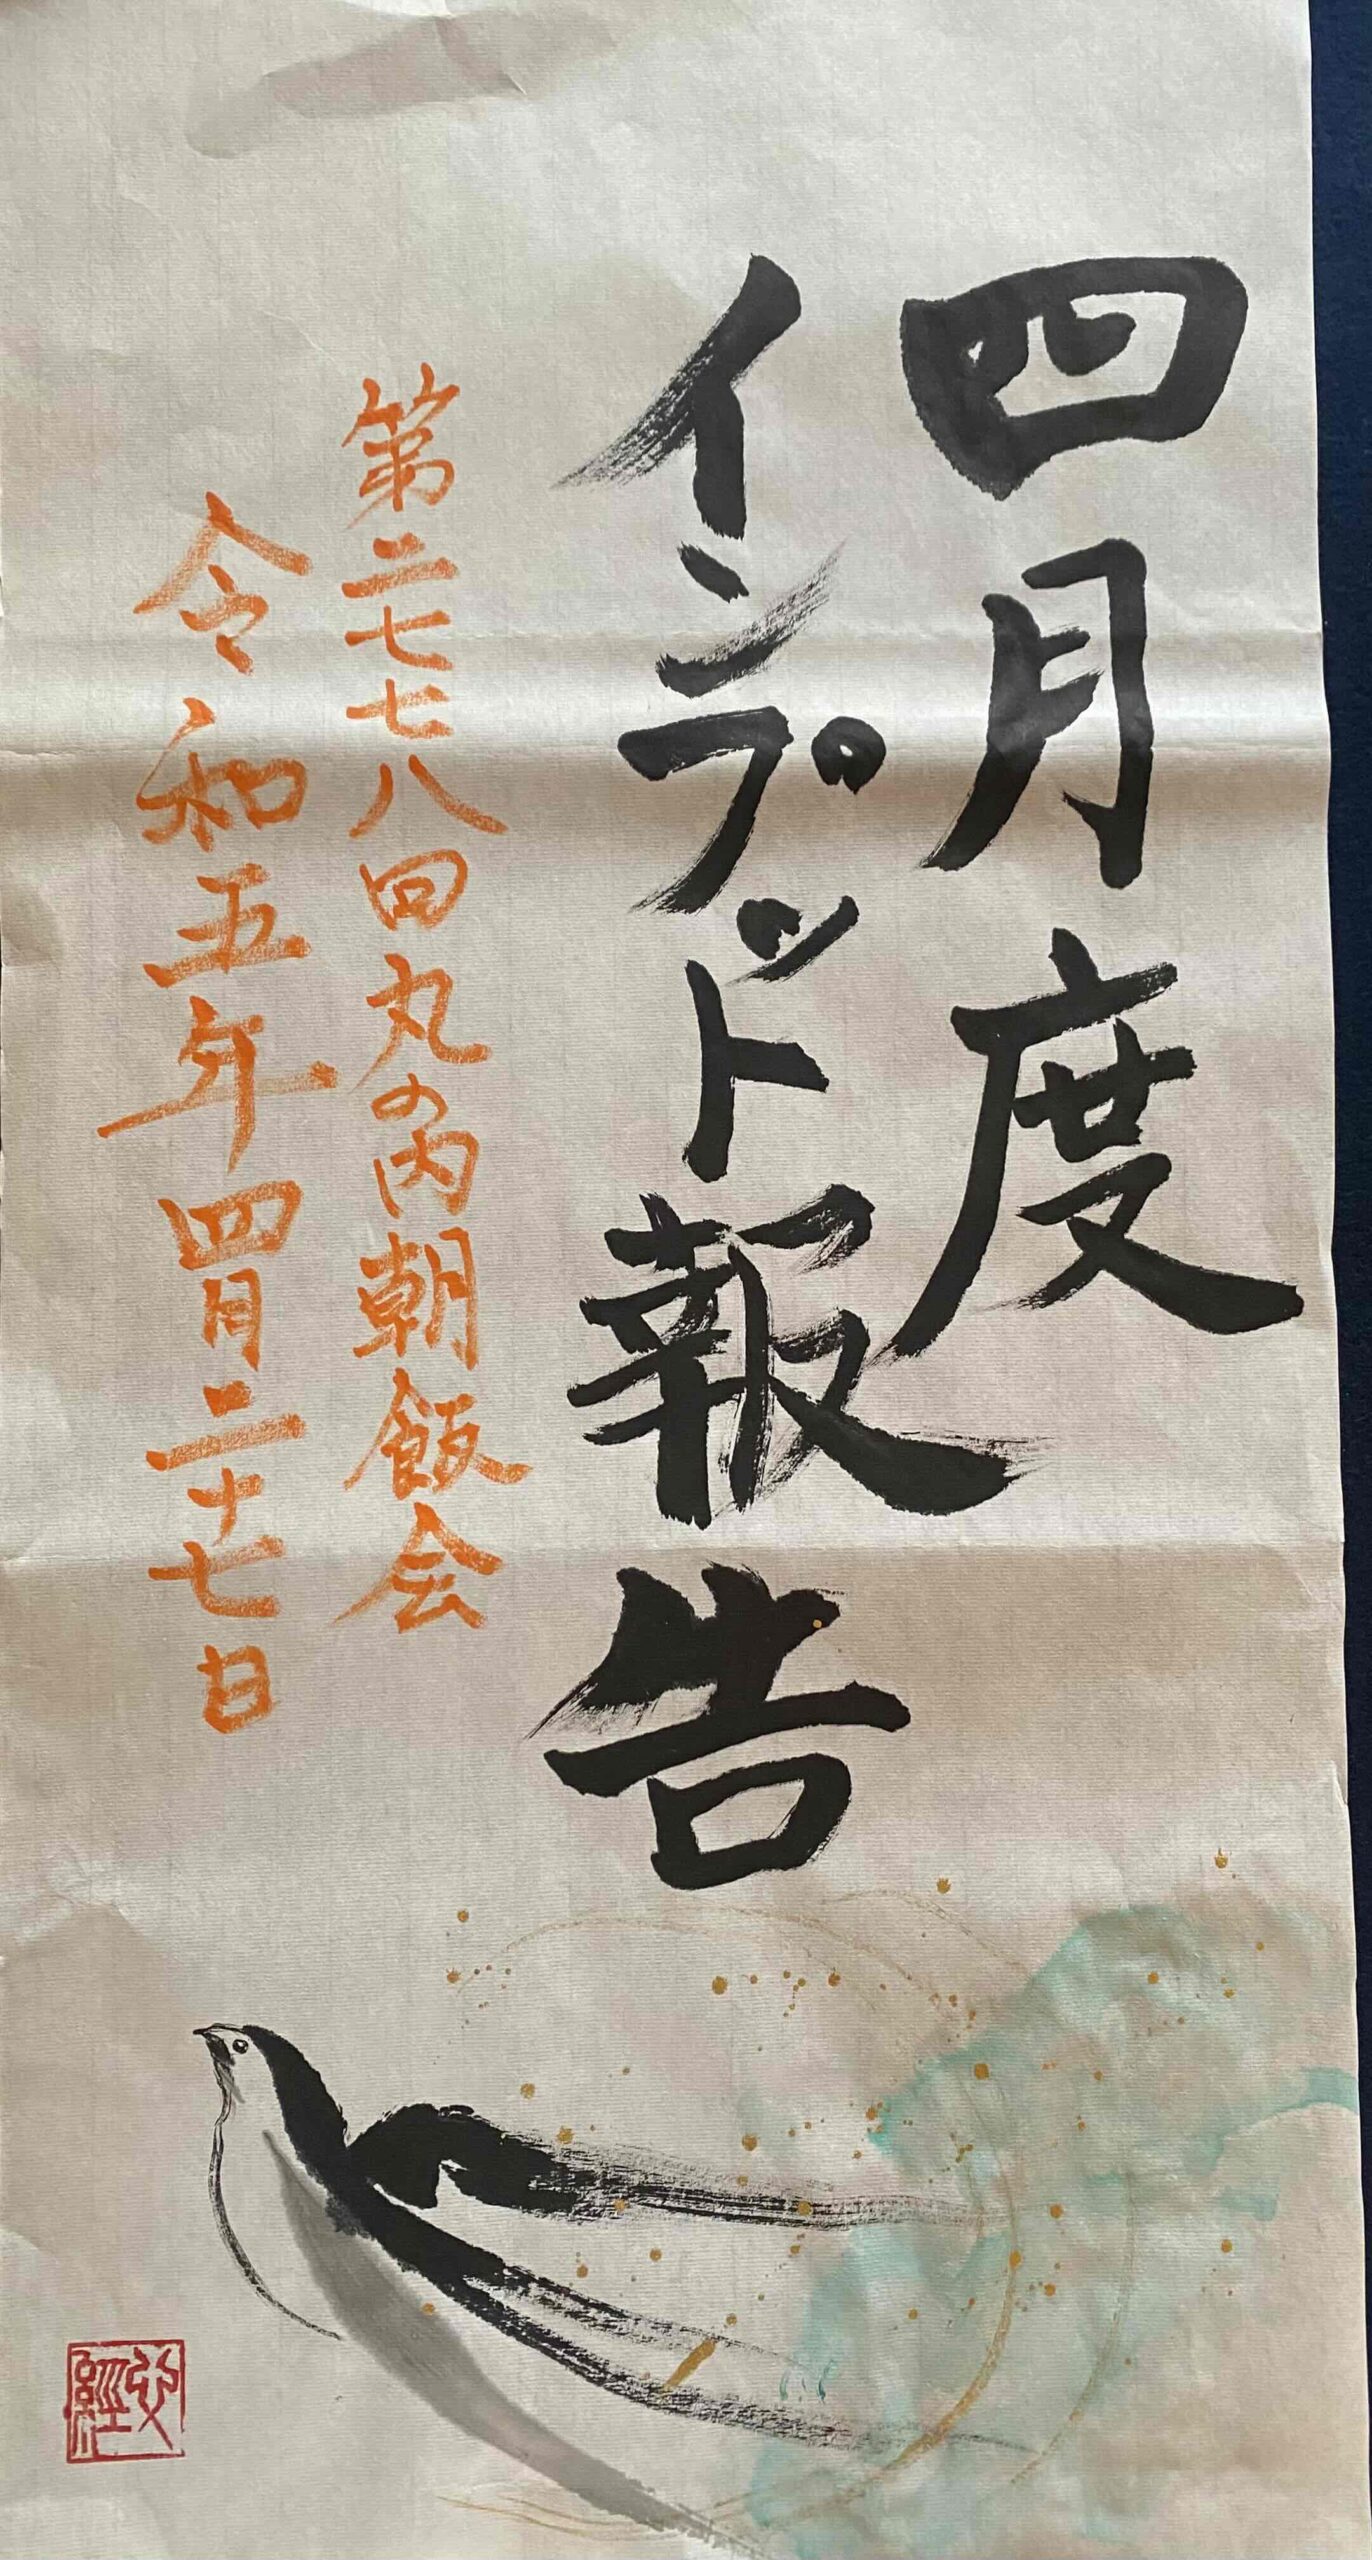 四月度
インプット報告
第二七七八回丸の内朝飯会
令和五年四月二十七日